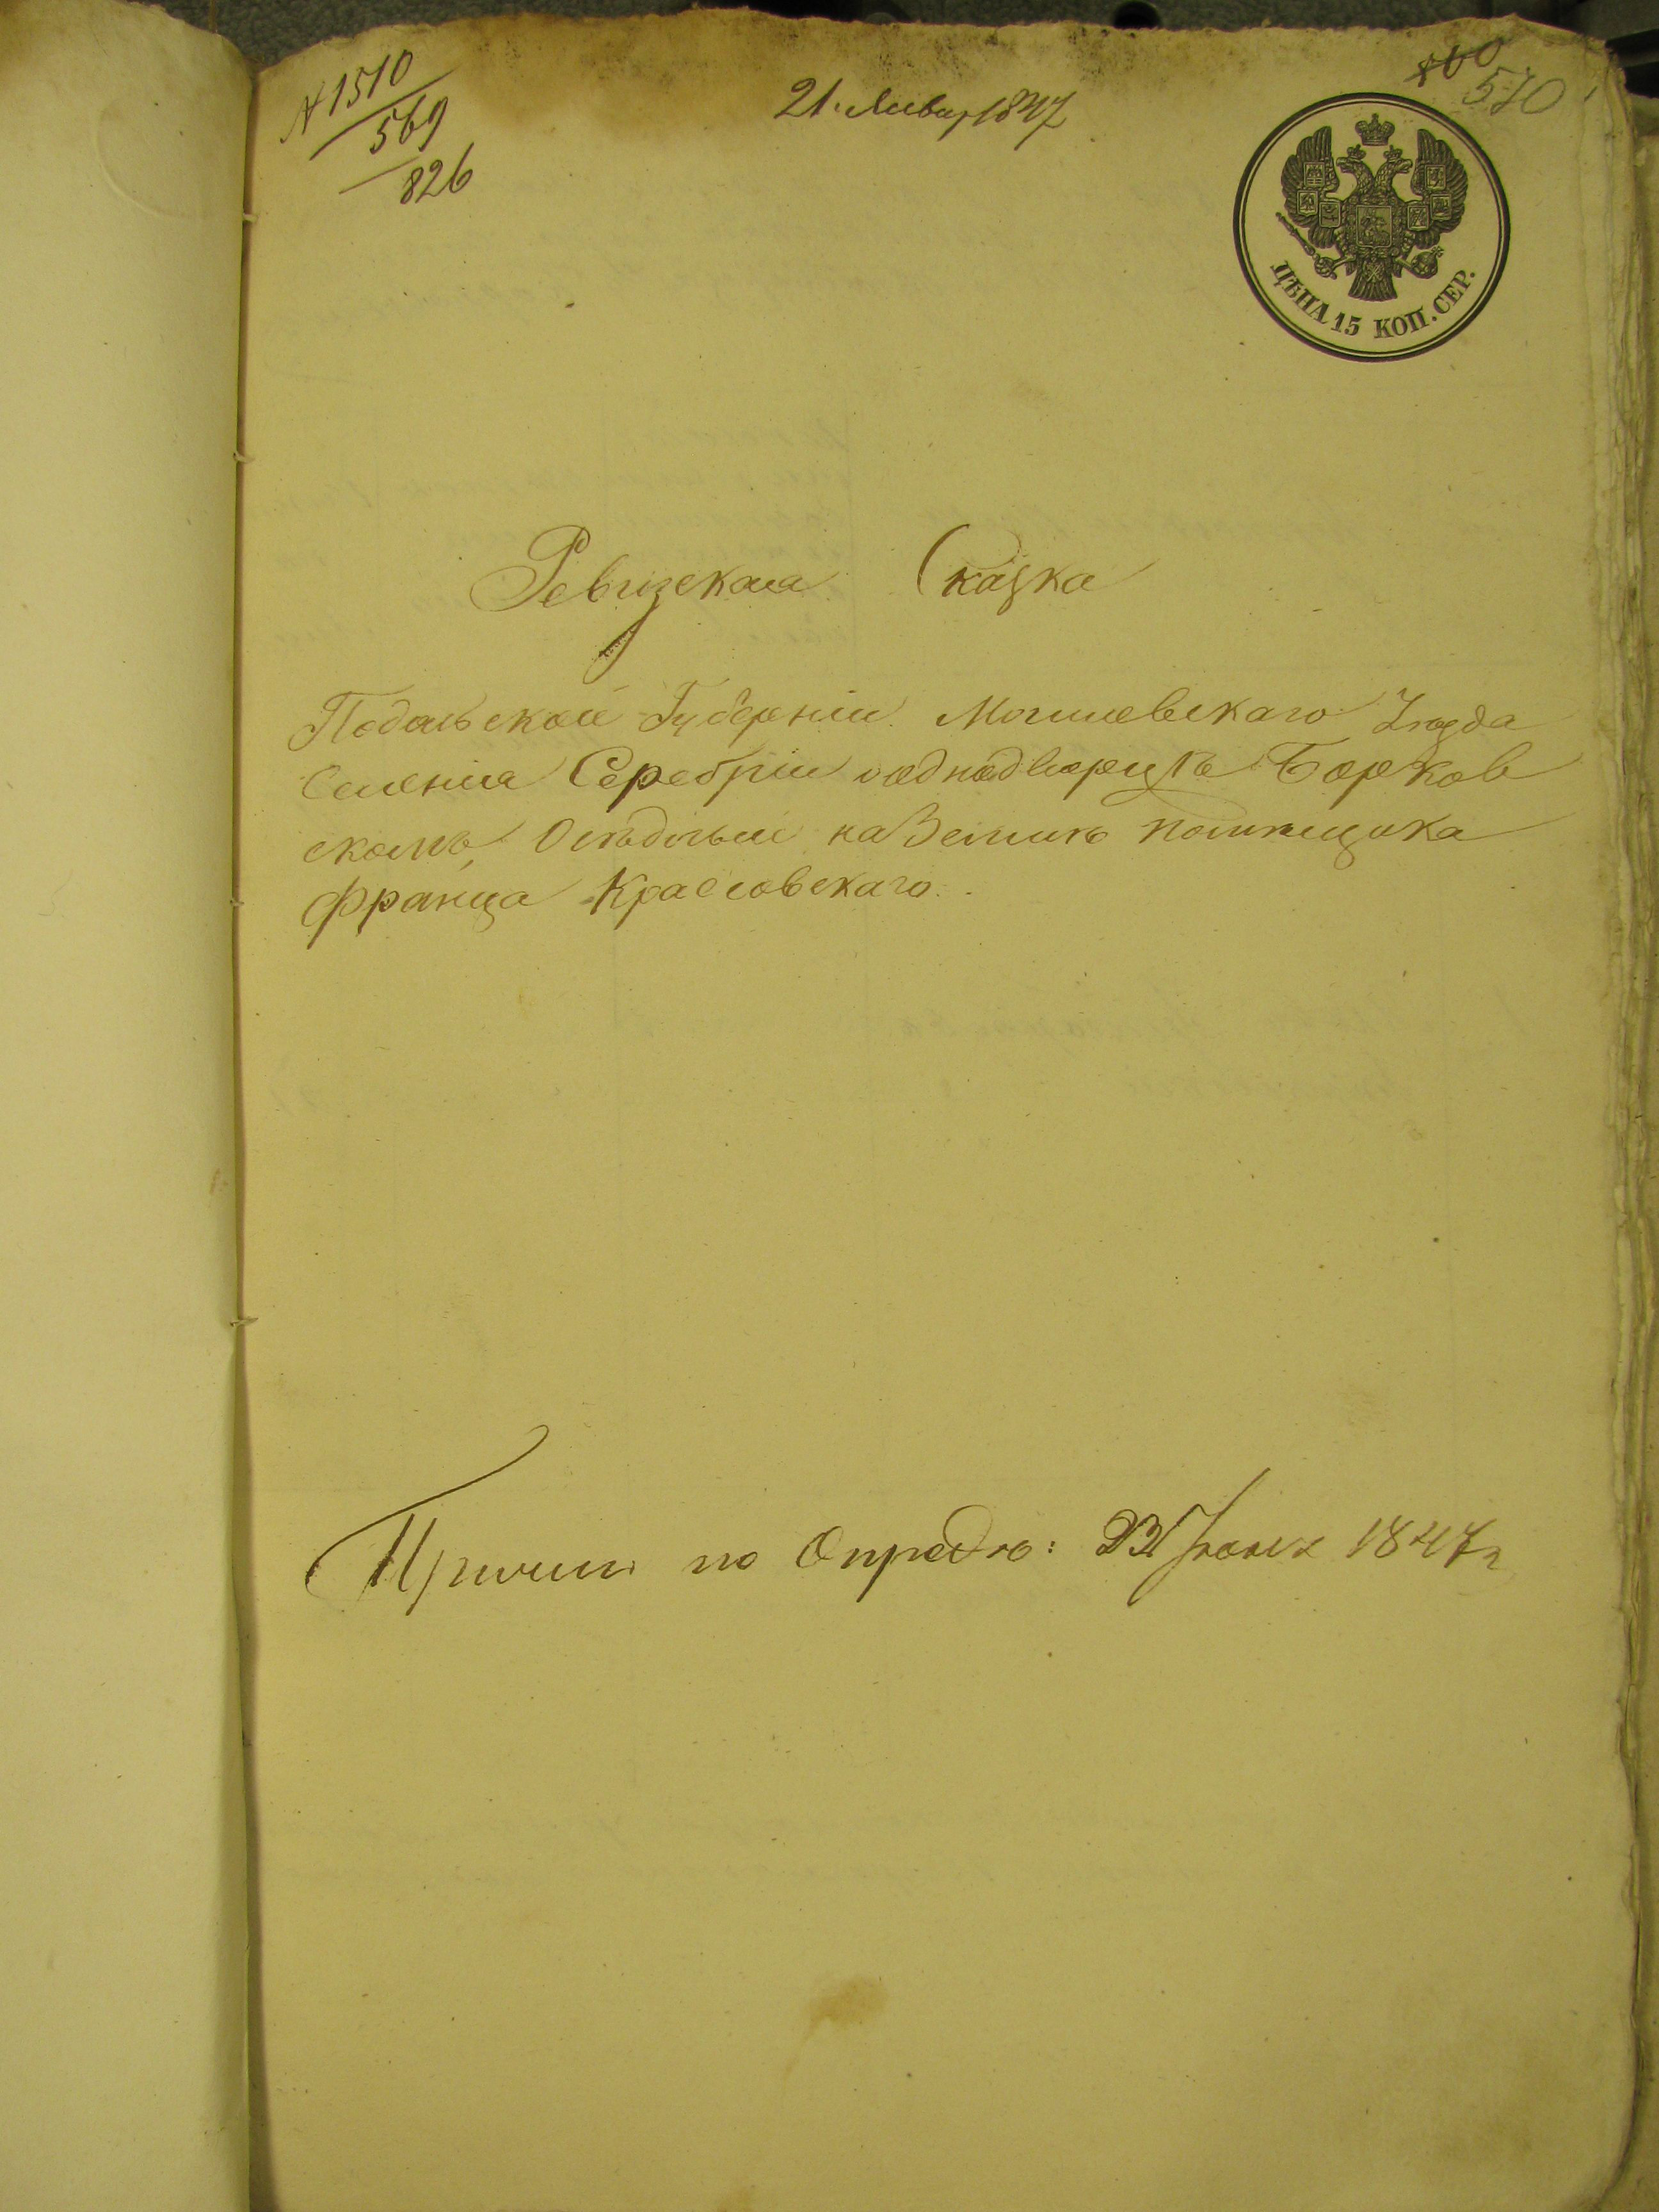 N 1510
569
826
21. Январ 1847
560
570
ЦѢНА 15 КОП. СЕР.
Ревизская Сказка
Подольской Губерніи Могилевскаго Уезда
Селенія Серебріи о однодворцѣ Борков
скомъ, Осѣдлый на Землѣ помѣщика
Франца Крассовскаго.
по Опредѣ: 1847 г